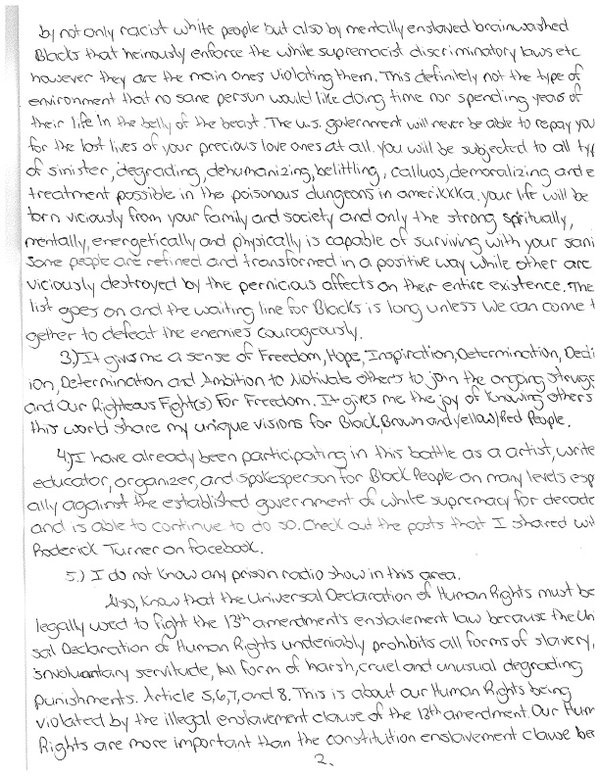 by not only racist white people but also by mentally enslaved brainwashed
Blacks that heinously enforce the white supremacist discriminatory laws etc
however they are the main ones violating them. This definitely not the type of
environment that no sane person would like doing time nor spending years of
their life in the belly of the beast. The U.S. government will never be able to repay you
for the lost lives of your precious love ones at all. you will be subjected to all typ
of sinister, degrading, dehumanizing, belittling, calluos, demoralizing and e
treatment possible in the poisonous dungeons in amerikkka. your life will be
torn viciously from your family and society and only the strong spiritually,
mentally, energetically and physically is capable of surviving with your sani
Some people are refined and transformed in a positive way while other are
viciously destroyed by the pernicious affects on their entire existence. The
list goes on and the waiting line for Blacks is long unless we can come t
gether to defeat the enemies courageously.
3.) It gives me a sense of Freedom, Hope, Inspiration, Determination, Dedi
ion, Determination and Ambition to Motivate others to join the ongoing strugg
and Our Righteous Fight(s) For Freedom. It gives me the joy of knowing others
this world share my unique visions for Black, Brown and yellow/Red People.
4.) I have already been participating in this battle as a artist, write
educator, organizer, and spokesperson for Black People on many levels esp
ally against the established government of white supremacy for decade
and is able to continue to do so. Check out the posts that I shared wit
Roderick Turner on facebook.
5.) I do not know any prison radio show in this area.
Also, know that the Universal Declaration of Human Rights must be
legally used to fight the 13th amendment's enslavement law because the Uni
sal Declaration of Human Rights undeniably prohibits all forms of slavery,
involuntary servitude, All form of harsh, cruel and unusual degrading
punishments. Article 5,6,7, and 8. This is about our Human Rights being
violated by the illegal enslavement clause of the 13th amendment. Our Hum
Rights are more important than the constitution enslavement clause bec
2.